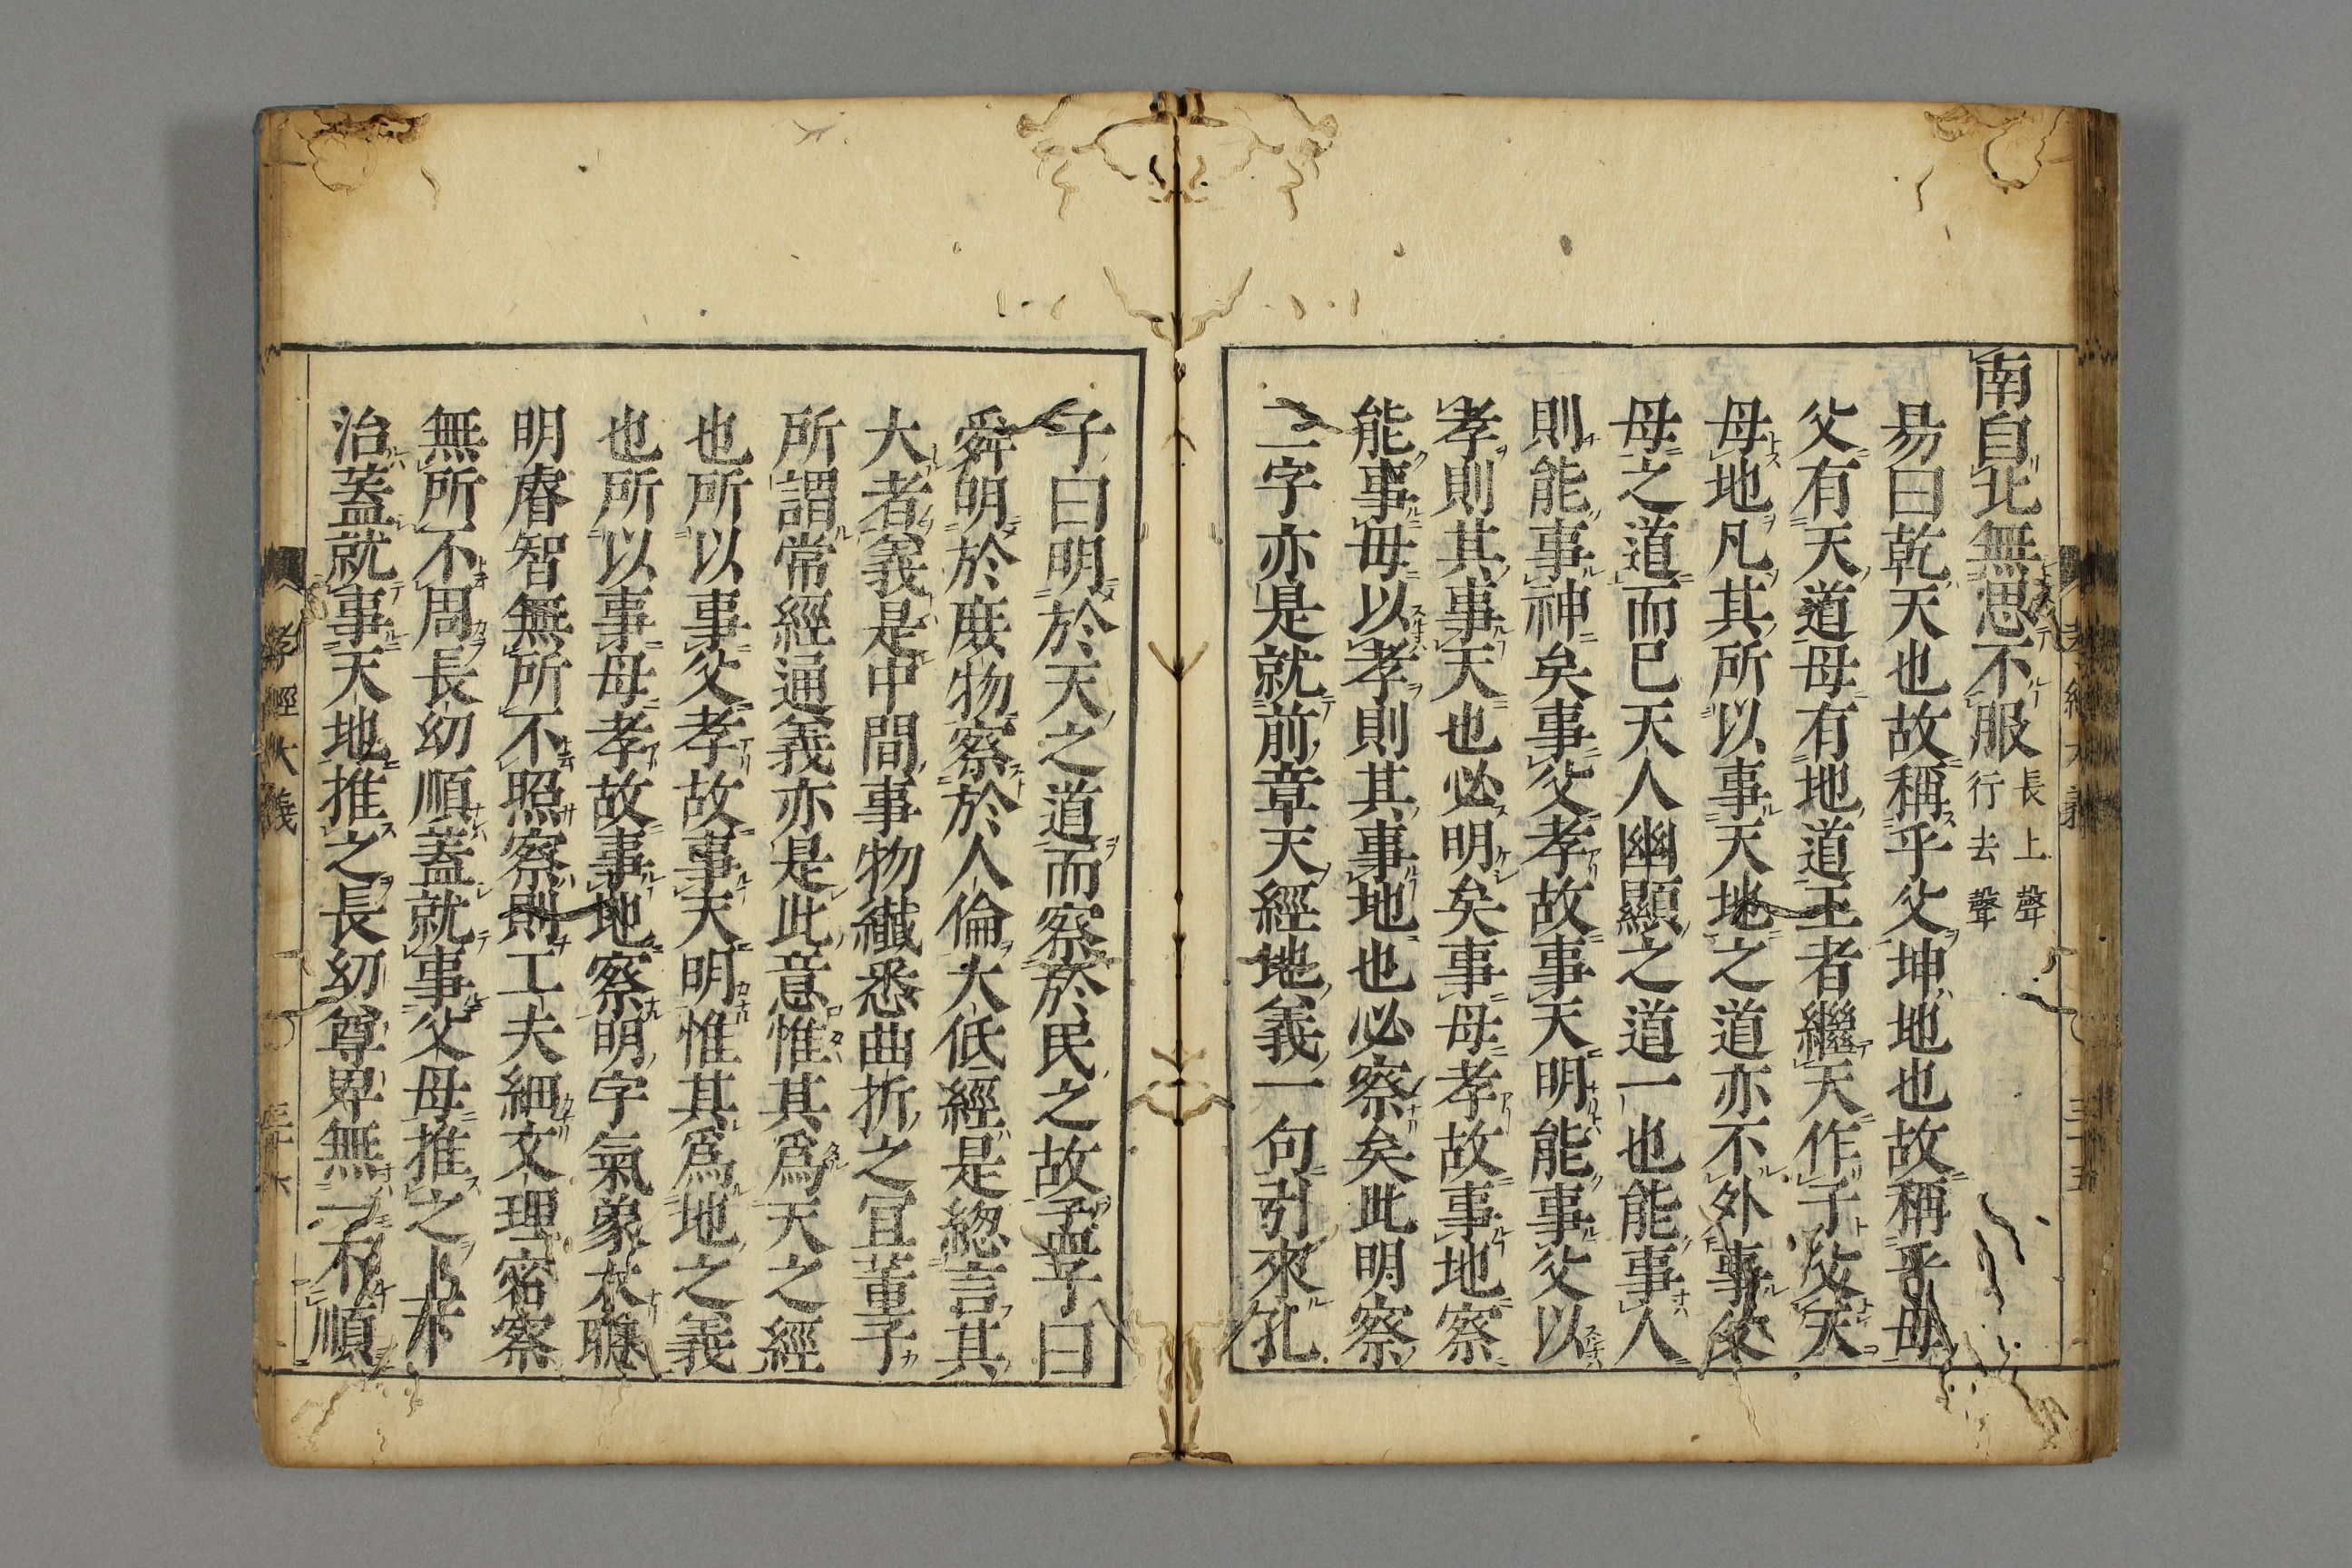 南自北無思不服 長上聲 行去聲
易曰乾天也故稱乎父坤地也故稱乎母
父有天道母有地道王者繼天作子父天
母地凡其所以事天地之道亦不外事父
母之道而已天人幽顯之道一也能事人
則能事神矣事父孝故事天明能事父以
孝則其事天也必明矣事母孝故事地察
能事母以孝則其事地也必察矣此明察
二字亦是就前章天經地義一句引來孔
子曰明於天之道而察於民之故孟子曰
舜明於庶物察於人倫大低經是總言其
大者義是中間事物纖悉曲折之宜董子
所謂常經通義亦是此意惟其爲天之經
也所以事父孝故事天明惟其爲地之義
也所以事母孝故事地察明字氣象大聰
明睿智無所不照察則工夫細文理密察
無所不周長幼順蓋就事父母推之上下
治蓋就事天地推之長幼尊卑無一不順
孝經大義